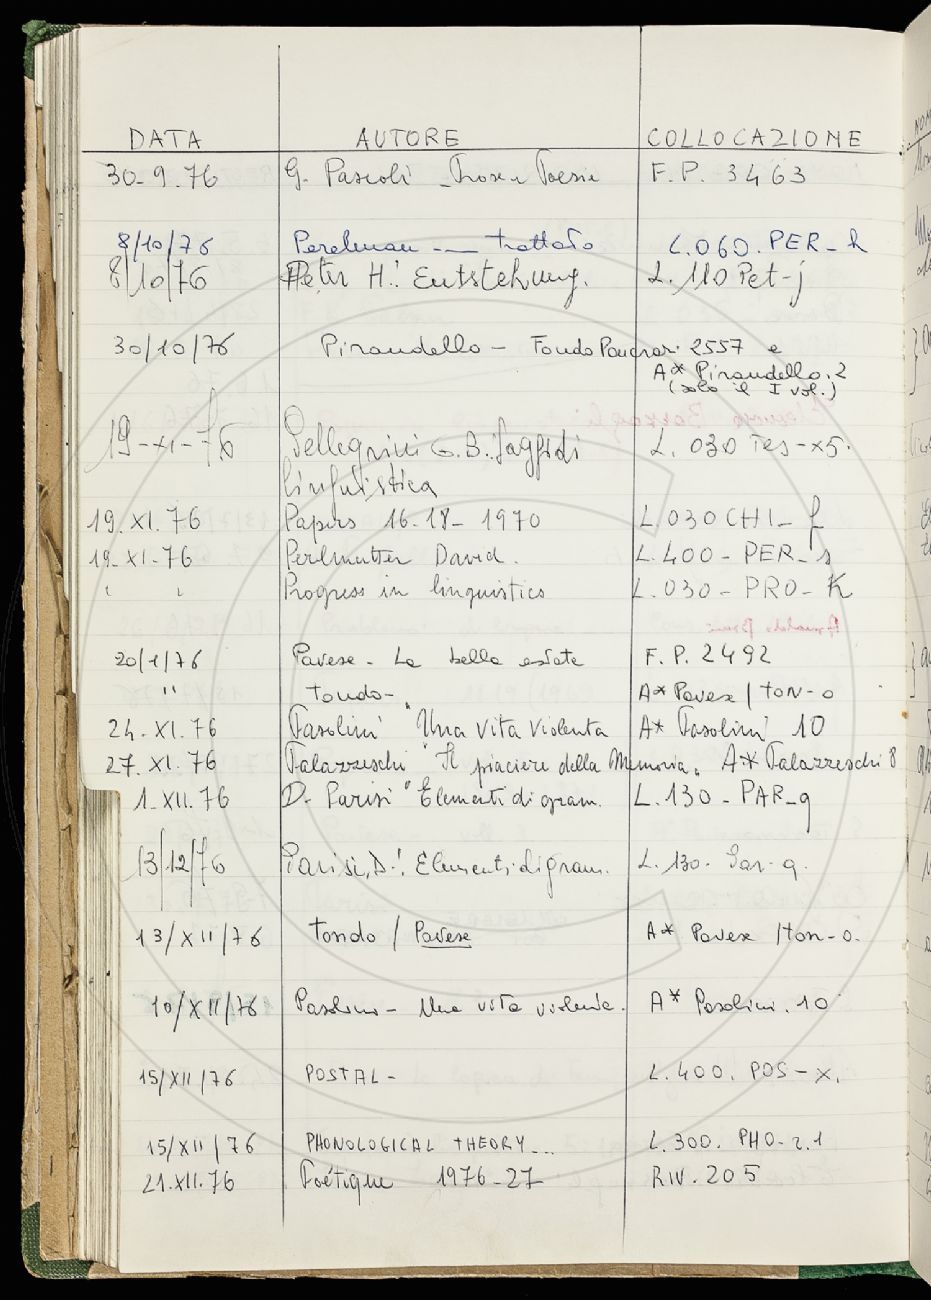 DATA AUTORE COLLOCAZIONE
30-9.76 G. Pascoli - Prose e Poesie F.P. 3463
8/10/76 Perelman -- trattato L.060.PER-h
8/10/76 Peter H.: Entstehung. L.110 Pet-j
30/10/76 Pirandello - Fondo Pancraz. 2557 e
A* Pirandello.2
(solo il I vol.)
19-XI-76 Pellegrini G.B.: Saggi di L. 030 Tes-x5.
linguistica
19.XI.76 Papers 16-18- 1970 L.030 CHI-f
19-XI-76 Perlmutter David. L.400-PER-s
" " Progress in linguistics L.030-PRO-K
20/1/76 Pavese - La bella estate F.P. 2492
" tondo- A* Pavese/ton-o
24.XI.76 Pasolini "Una vita violenta A* Pasolini 10
27.XI.76 Palazzeschi "Il piacere della Memoria" A* Palazzeschi 8
1-XII.76 D. Parisi "Elementi di gram. L.130-PAR-g
13/12/76 Parisi, D.: Elementi di gram. L.130. Par-g.
13/XII/76 tondo / Pavese A* Pavese /ton-o.
10/XII/76 Pasolini - Una vita violenta. A* Pasolini.10
15/XII/76 POSTAL- L.400. POS-x.
15/XII/76 PHONOLOGICAL THEORY... L.300. PHO-r.1
21.XII.76 Poétique 1976-27 RIV.205